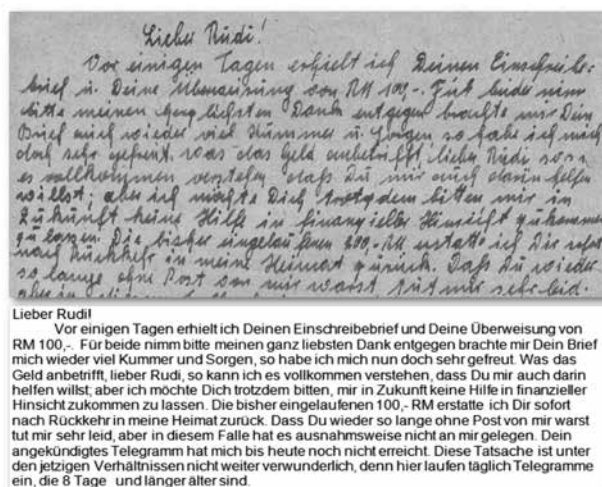 Lieber Rudi!
Vor einigen Tagen erhielt ich Deinen Einschreibe-
brief u. Deine Überweisung von RM 100,-. Für beides nimm
bitte meinen herzlichsten Dank entgegen brachte mir Dein
Brief auch wieder viel Kummer u. Sorgen so habe ich mich
doch sehr gefreut. was das Geld anbetrifft, lieber Rudi so
es vollkommen verstehen daß Du mir auch darin helfen
willst; aber ich möchte Dich trotzdem bitten mir in
Zukunft keine Hilfe in finanzieller Hinsicht zukommen
zu lassen. Die bisher eingelaufenen RM erstatte ich Dir sofort
nach Rückkehr in meine Heimat zurück. Daß Du wieder
so lange ohne Post von mir warst, tut mir sehr leid.
aber in
Lieber Rudi!
Vor einigen Tagen erhielt ich Deinen Einschreibebrief und Deine Überweisung von
RM 100,-. Für beide nimm bitte meinen ganz liebsten Dank entgegen brachte mir Dein Brief
mich wieder viel Kummer und Sorgen, so habe ich mich nun doch sehr gefreut. Was das
Geld anbetrifft, lieber Rudi, so kann ich es vollkommen verstehen, dass Du mir auch darin
helfen willst; aber ich möchte Dich trotzdem bitten, mir in Zukunft keine Hilfe in finanzieller
Hinsicht zukommen zu lassen. Die bisher eingelaufenen 100,- RM erstatte ich Dir sofort
nach Rückkehr in meine Heimat zurück. Dass Du wieder so lange ohne Post von mir warst
tut mir sehr leid, aber in diesem Falle hat es ausnahmsweise nicht an mir gelegen. Dein
angekündigtes Telegramm hat mich bis heute noch nicht erreicht. Diese Tatsache ist unter
den jetzigen Verhältnissen nicht weiter verwunderlich, denn hier laufen täglich Telegramme
ein, die 8 Tage und länger älter sind.